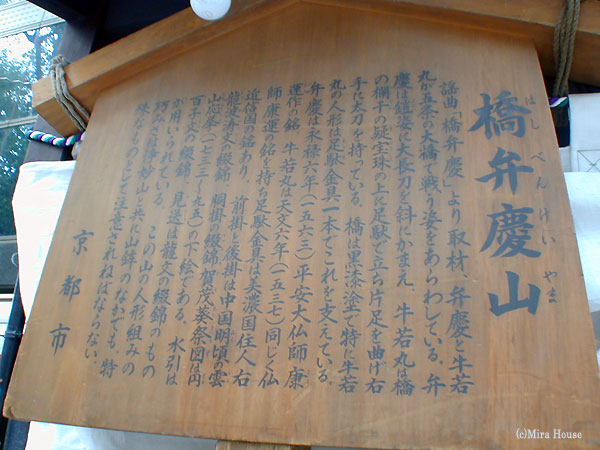 橋弁慶山
はしべんけいやま
謡曲「橋弁慶」より取材、弁慶と牛若
丸が五条の大橋で戦う姿をあらわしている。弁
慶は鎧姿に大長刀を斜にかまえ、牛若丸は橋
の欄干の擬宝珠の上に足駄で立ち片足を曲げ右
手に太刀を持っている。橋は黒漆塗で特に牛若
丸の人形は足駄金具一本でこれを支えている。
弁慶は永禄六年(一五六三)平安大仏師康
運作の銘、牛若丸は天文六年(一五三七)同じく仏
師康運の銘を持ち足駄金具は美濃国住人右
近信国の銘あり、前掛と後掛は中国明頃の雲
龍波濤文の綴錦、胴掛の綴錦「賀茂葵祭図」は円
山応挙(一七三三〜九五)の下絵である。水引は
百子文の綴錦、見送は龍文の綴錦のもの
が用いられている。この山の人形組みの
巧みさは浄妙山と共に山鉾のなかでも、特
殊なものとして注意されねばならない。
京都市
(c)Mira House